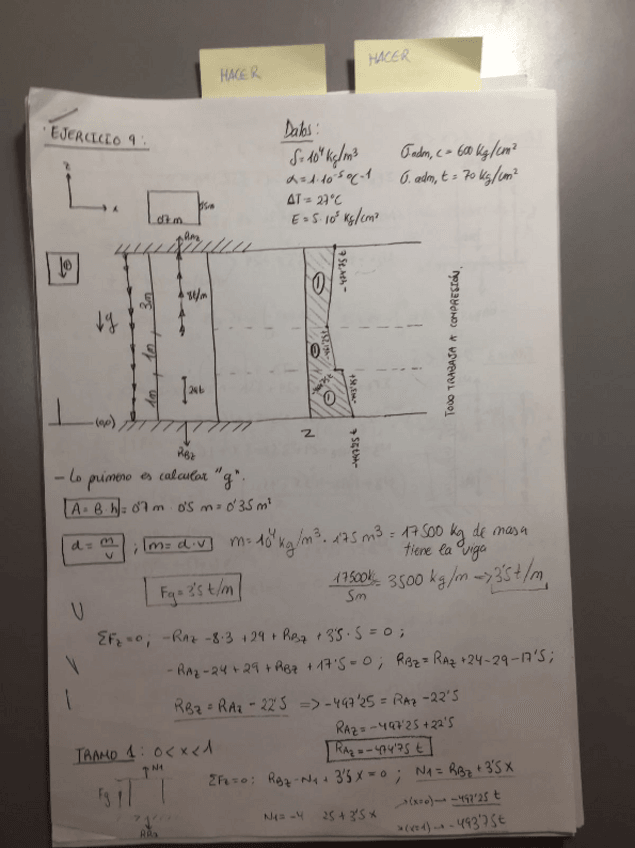 HACER
HACER
EJERCICIO 9:
Datos:
δ = 10⁴ kg/m³
σadm, c = 600 kg/cm²
α = 1·10⁻⁵ ºC⁻¹
σ. adm, t = 70 kg/cm²
ΔT = 27°C
E = 5·10⁵ kg/cm²
z
x
0'7 m
RAz
⊕
g
3m
8t/m
1m
1m
29t
(0,0)
RBz
N
-474'75t
-497'25 t
TODO TRABAJA A COMPRESIÓN.
- Lo primero es calcular "g".
A = B·h = 0'7 m · 0'5 m = 0'35 m²
d = m/v ; m = d·v m = 10⁴ kg/m³ · 1'75 m³ = 17500 kg de masa
tiene la viga
Fg = 3'5 t/m
17500k/5m = 3500 kg/m => 3'5 t/m
ΣFz = 0; -RAz - 8·3 + 29 + RBz + 3'5·5 = 0;
-RAz - 24 + 29 + RBz + 17'5 = 0; RBz = RAz + 24 - 29 - 17'5;
RBz = RAz - 22'5 => -497'25 = RAz - 22'5
RAz = -497'25 + 22'5
RAz = -474'75 t
TRAMO 1: 0 < x < 1
N1
Fg
ΣFz = 0: RBz - N1 + 3'5 x = 0 ; N1 = RBz + 3'5 x
N1 = -4 25 + 3'5 x
→ (x=0) → -497'25 t
→ (x=1) → -493'75t